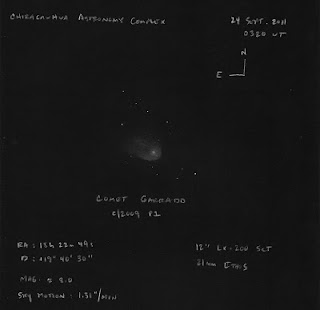 CHIRICAHUA ASTRONOMY COMPLEX
24 SEPT. 2011
0320 UT
N
E
COMET GARRADD
C/2009 P1
RA: 18h 22m 49s
D: +19° 40' 30"
MAG: ≈ 8.0
SKY MOTION: 1.31"/MIN
12" LX-200 SCT
31mm